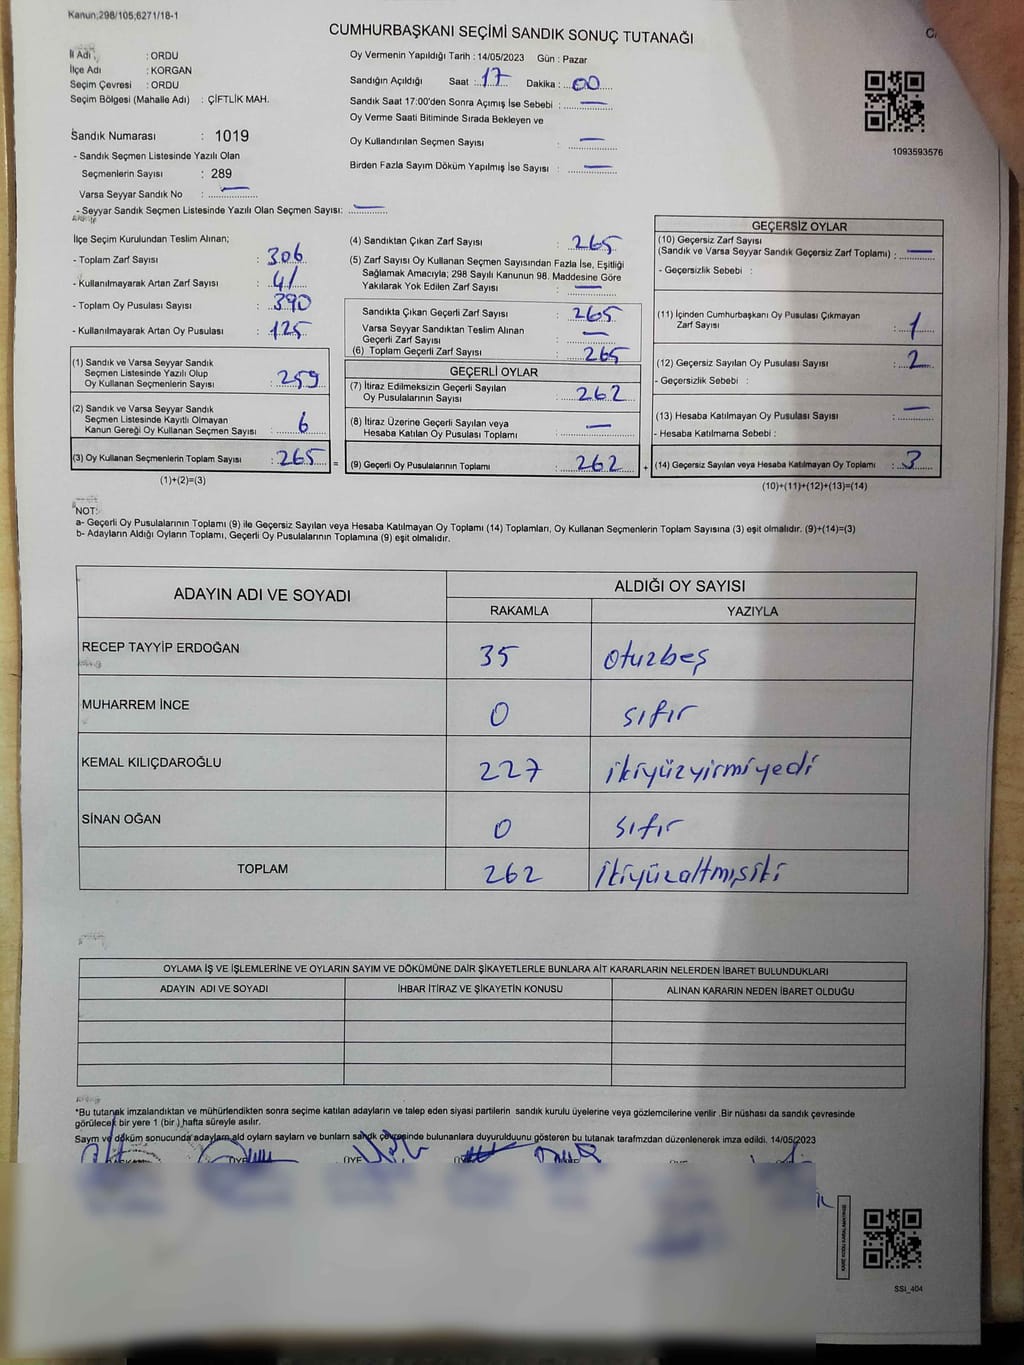 Kanun;298/105;6271/18-1
CUMHURBAŞKANI SEÇİMİ SANDIK SONUÇ TUTANAĞI
İl Adı : ORDU
İlçe Adı : KORGAN
Seçim Çevresi : ORDU
Seçim Bölgesi (Mahalle Adı) : ÇİFTLİK MAH.
Sandık Numarası : 1019
- Sandık Seçmen Listesinde Yazılı Olan
Seçmenlerin Sayısı : 289
Varsa Seyyar Sandık No : —
- Seyyar Sandık Seçmen Listesinde Yazılı Olan Seçmen Sayısı: —
Oy Vermenin Yapıldığı Tarih : 14/05/2023 Gün : Pazar
Sandığın Açıldığı Saat : 17 Dakika : 00
Sandık Saat 17:00'den Sonra Açımış İse Sebebi : —
Oy Verme Saati Bitiminde Sırada Bekleyen ve
Oy Kullandırılan Seçmen Sayısı : —
Birden Fazla Sayım Döküm Yapılmış İse Sayısı : —
1093593576
İlçe Seçim Kurulundan Teslim Alınan;
- Toplam Zarf Sayısı : 306
- Kullanılmayarak Artan Zarf Sayısı : 41
- Toplam Oy Pusulası Sayısı : 390
- Kullanılmayarak Artan Oy Pusulası : 125
(1) Sandık ve Varsa Seyyar Sandık
Seçmen Listesinde Yazılı Olup
Oy Kullanan Seçmenlerin Sayısı : 259
(2) Sandık ve Varsa Seyyar Sandık
Seçmen Listesinde Kayıtlı Olmayan
Kanun Gereği Oy Kullanan Seçmen Sayısı : 6
(3) Oy Kullanan Seçmenlerin Toplam Sayısı : 265 =
(1)+(2)=(3)
(4) Sandıktan Çıkan Zarf Sayısı : 265
(5) Zarf Sayısı Oy Kullanan Seçmen Sayısından Fazla İse, Eşitliği
Sağlamak Amacıyla; 298 Sayılı Kanunun 98. Maddesine Göre
Yakılarak Yok Edilen Zarf Sayısı : —
Sandıkta Çıkan Geçerli Zarf Sayısı : 265
Varsa Seyyar Sandıktan Teslim Alınan
Geçerli Zarf Sayısı : —
(6) Toplam Geçerli Zarf Sayısı : 265
GEÇERLİ OYLAR
(7) İtiraz Edilmeksizin Geçerli Sayılan
Oy Pusulalarının Sayısı : 262
(8) İtiraz Üzerine Geçerli Sayılan veya
Hesaba Katılan Oy Pusulası Toplamı : —
(9) Geçerli Oy Pusulalarının Toplamı : 262 +
GEÇERSİZ OYLAR
(10) Geçersiz Zarf Sayısı
(Sandık ve Varsa Seyyar Sandık Geçersiz Zarf Toplamı) : —
- Geçersizlik Sebebi :
(11) İçinden Cumhurbaşkanı Oy Pusulası Çıkmayan
Zarf Sayısı : 1
(12) Geçersiz Sayılan Oy Pusulası Sayısı : 2
- Geçersizlik Sebebi :
(13) Hesaba Katılmayan Oy Pusulası Sayısı : —
- Hesaba Katılmama Sebebi :
(14) Geçersiz Sayılan veya Hesaba Katılmayan Oy Toplamı : 3
(10)+(11)+(12)+(13)=(14)
NOT:
a- Geçerli Oy Pusulalarının Toplamı (9) ile Geçersiz Sayılan veya Hesaba Katılmayan Oy Toplamı (14) Toplamları, Oy Kullanan Seçmenlerin Toplam Sayısına (3) eşit olmalıdır. (9)+(14)=(3)
b- Adayların Aldığı Oyların Toplamı, Geçerli Oy Pusulalarının Toplamına (9) eşit olmalıdır.
ADAYIN ADI VE SOYADI ALDIĞI OY SAYISI
RAKAMLA YAZIYLA
RECEP TAYYİP ERDOĞAN 35 otuzbeş
MUHARREM İNCE 0 sıfır
KEMAL KILIÇDAROĞLU 227 ikiyüzyirmiyedi
SİNAN OĞAN 0 sıfır
TOPLAM 262 ikiyüzaltmışiki
OYLAMA İŞ VE İŞLEMLERİNE VE OYLARIN SAYIM VE DÖKÜMÜNE DAİR ŞİKAYETLERLE BUNLARA AİT KARARLARIN NELERDEN İBARET BULUNDUKLARI
ADAYIN ADI VE SOYADI İHBAR İTİRAZ VE ŞİKAYETİN KONUSU ALINAN KARARIN NEDEN İBARET OLDUĞU
*Bu tutanak imzalandıktan ve mühürlendikten sonra seçime katılan adayların ve talep eden siyasi partilerin sandık kurulu üyelerine veya gözlemcilerine verilir .Bir nüshası da sandık çevresinde
görülecek bir yere 1 (bir ) hafta süreyle asılır.
Sayım ve döküm sonucunda adayların ald oyların sayların ve bunların sandk çevresinde bulunanlara duyurulduunu gösteren bu tutanak tarafmzdan düzenlenerek imza edildi. 14/05/2023
ÜYE ÜYE
SSI_404